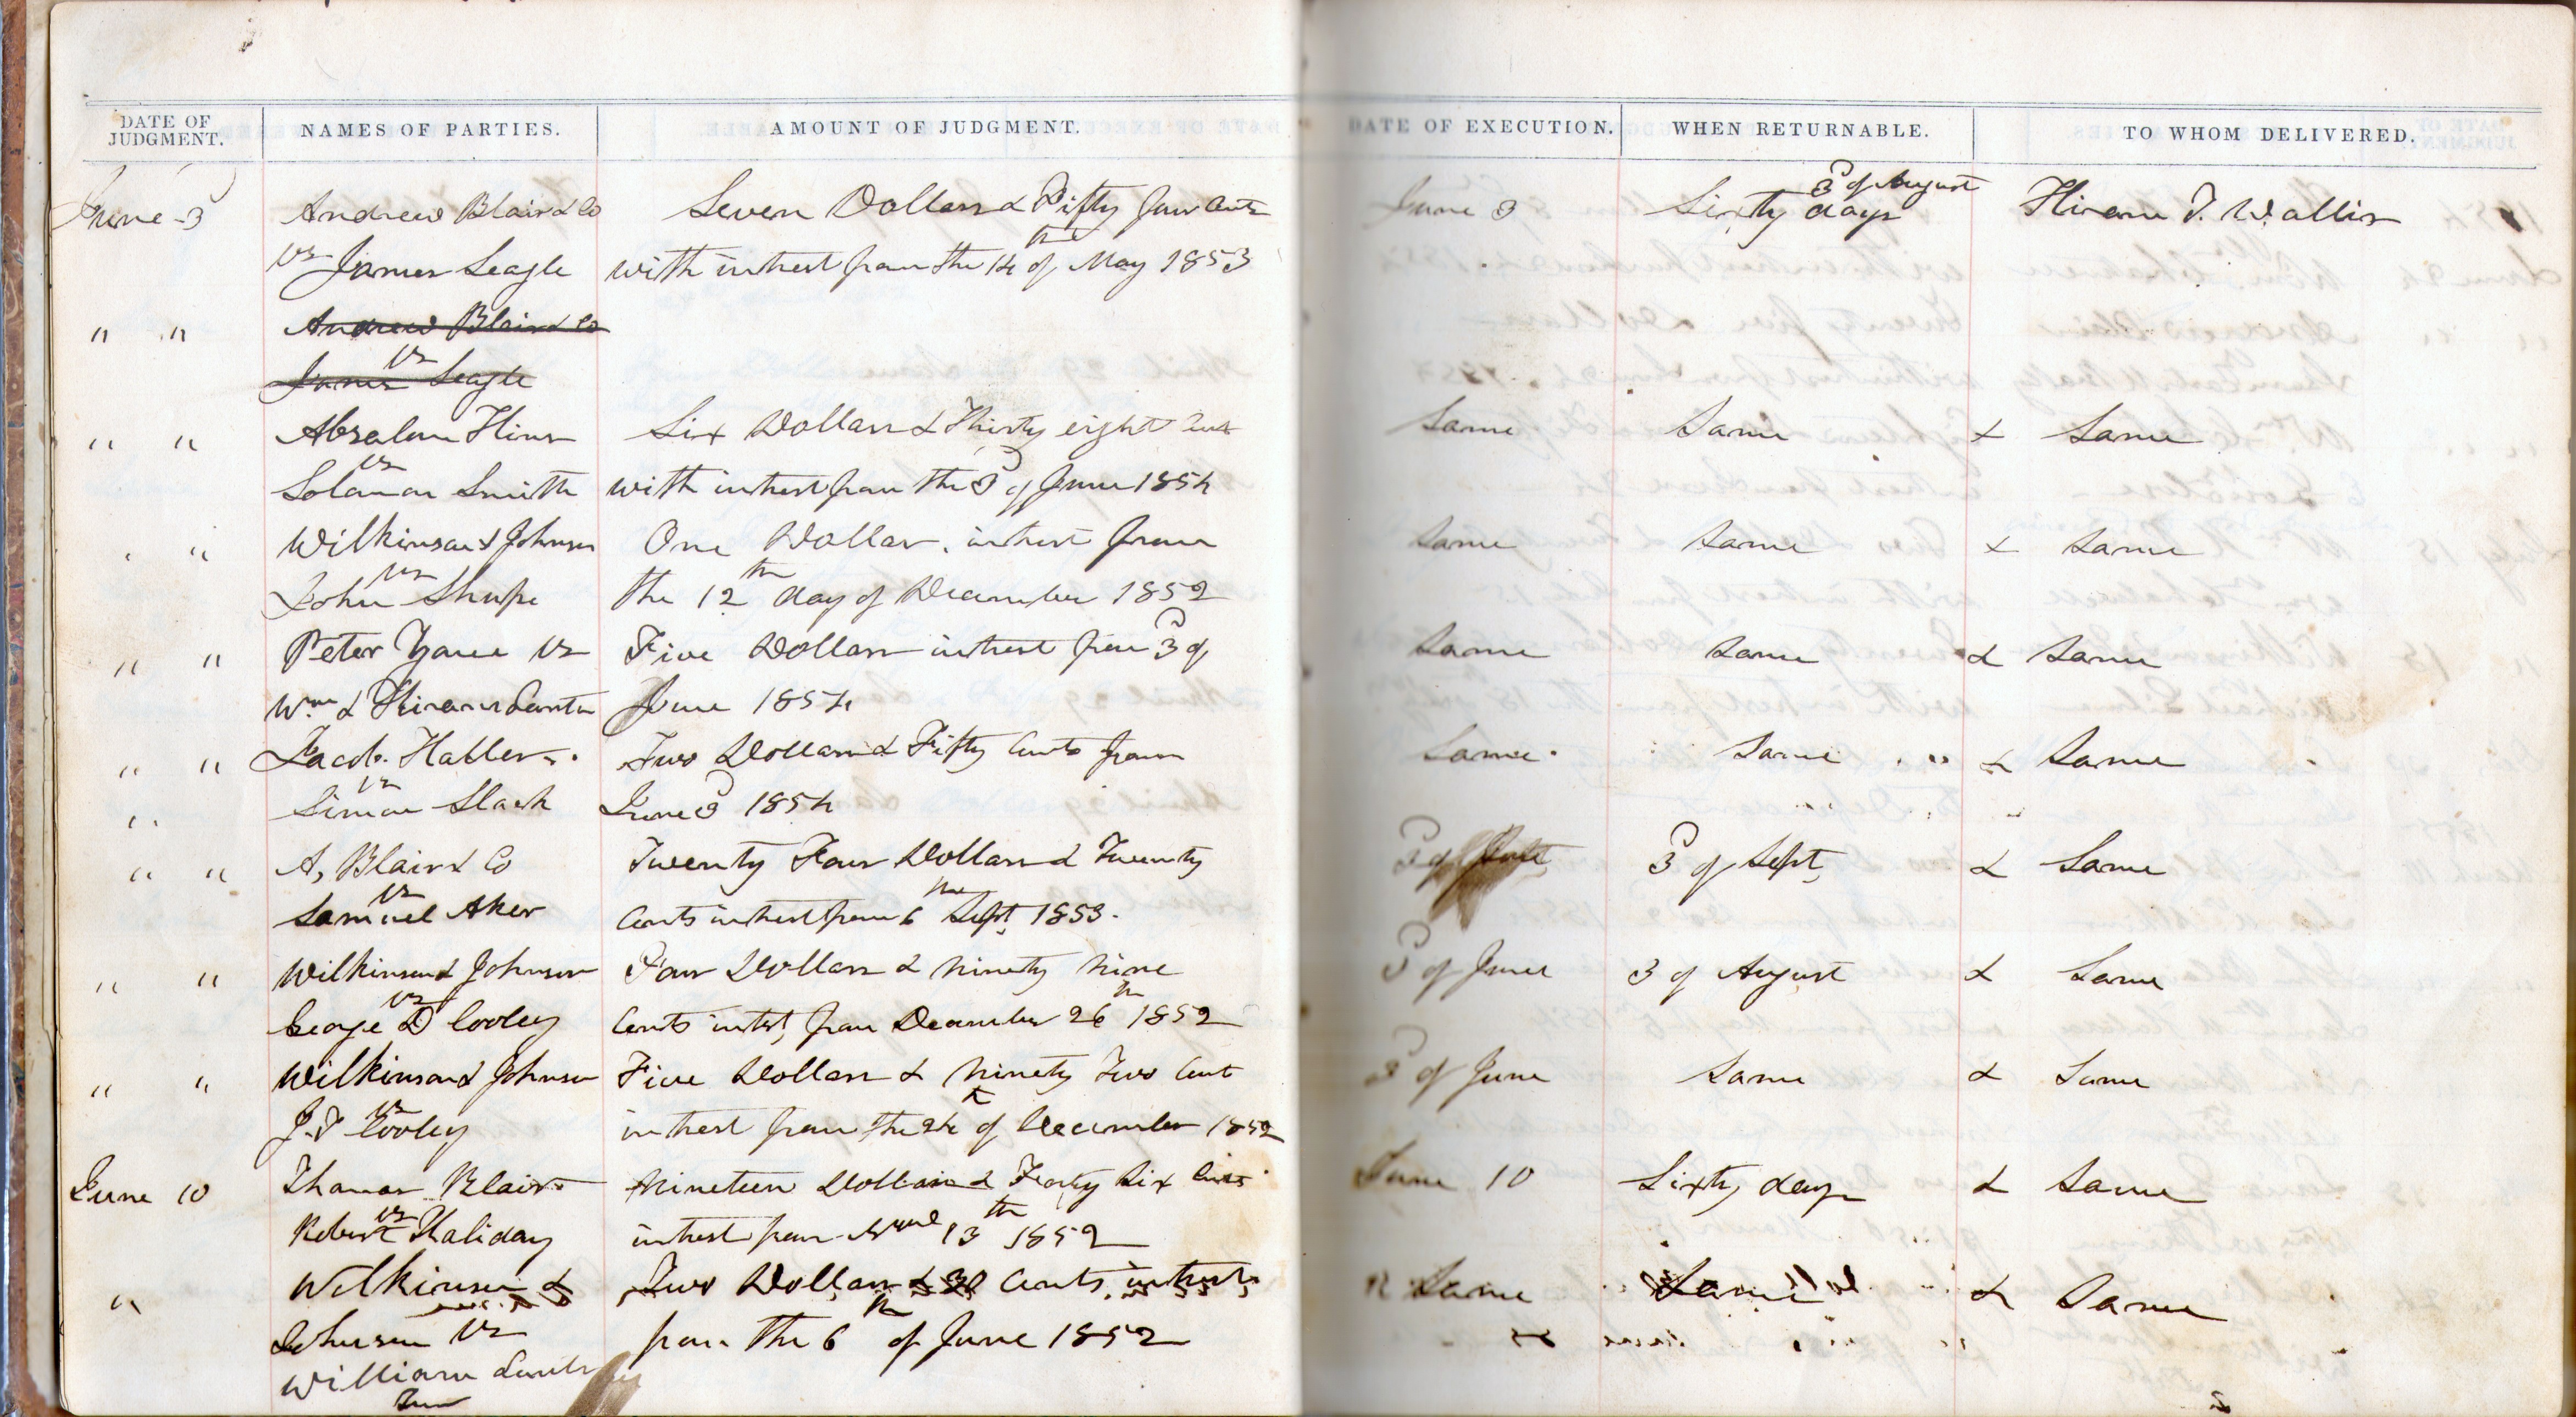 DATE OF JUDGMENT. NAMES OF PARTIES. AMOUNT OF JUDGMENT. DATE OF EXECUTION. WHEN RETURNABLE. TO WHOM DELIVERED.
3d of August
June 3 Andrew Blair & Co Seven Dollars & Fifty four Cents June 3 Sixty days Hiram T. Wallis
vs James Seagle with intrest from the 14th of May 1853
" " Andrew Blair & Co
vs
James Seagle
" " Absalom Hines Six Dollars & Thirty eight Cents Same Same & Same
vs
Soloman Smith with intrest from the 3d of June 1854
" Wilkinson & Johnson One Dollar. intrest from Same Same & Same
vs
John Shupe the 12th day of December 1852
" " Peter vs Five Dollars intrest from 3d of Same Same & Same
Wm & Hiram June 1854
" " Jacob Haller Two Dollars & Fifty Cents from Same Same & Same
vs
" Simon June 3d 1854
" " A, Blair & Co Twenty Four Dollars & Twenty 3d of 3d of Sept, & Same
vs
Samuel Aker Cents intrest from 6th Sept, 1853.
" " Wilkinson & Johnson Four Dollars & Ninety Nine 3d of June 3 of August & Same
vs
George D Cooley Cents intst, from December 26th 1852
" " Wilkinson & Johnson Five Dollars & Ninety Two Cent 3d of June Same & Same
vs
J. T Cooley intrest from the 24th of December 1852
June 10 Thomas Blair Nineteen Dollars & Forty Six Cents June 10 Sixty days & Same
vs
Robert Haliday intrest from 13th 1852
" Wilkinson & Two Dollars & 30 Cents intrest Same Same & Same
Johnson vs from the 6th of June 1852
William